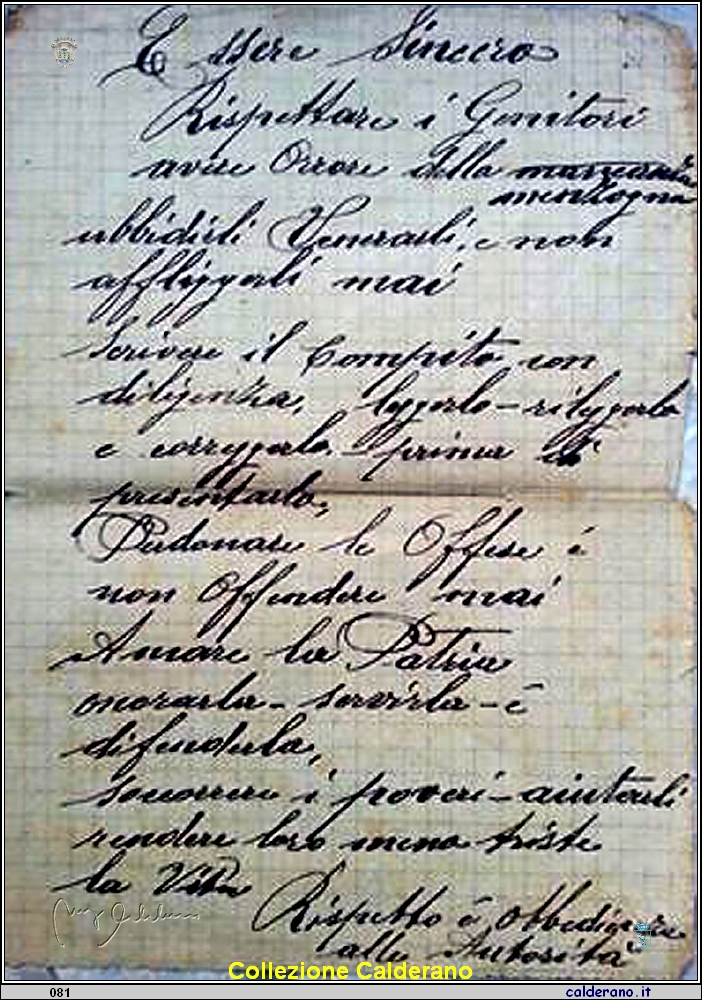 Essere Sincero
Rispettare i Genitori
avere Orrore della menzogna
ubbidirli Venerarli, e non
affliggerli mai
Scrivere il Compito con
diligenza, leggerlo - rileggerlo
e correggerlo - prima di
presentarlo,
Perdonare le Offese é
non offendere mai
Amare la Patria
onorarla - servirla - é
difenderla,
soccorrere i poveri - aiutarli
rendere loro meno triste
la Vita
Rispetto é Obbedienza
alle Autorità
Collezione Calderano
081
calderano.it